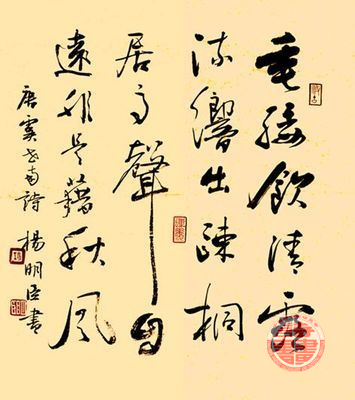 垂緌飲清露
流響出疎桐
居高聲自
遠非是藉秋風
唐虞世南詩 楊明臣書